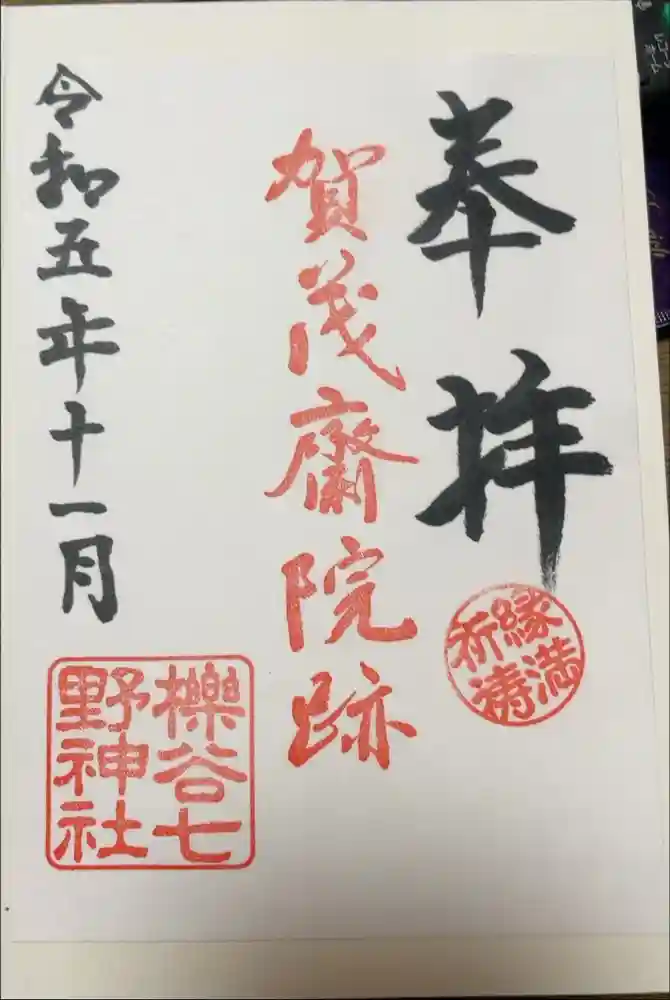 奉拝
縁満
祈祷
賀茂齋院跡
櫟谷七
野神社
令和五年十一月